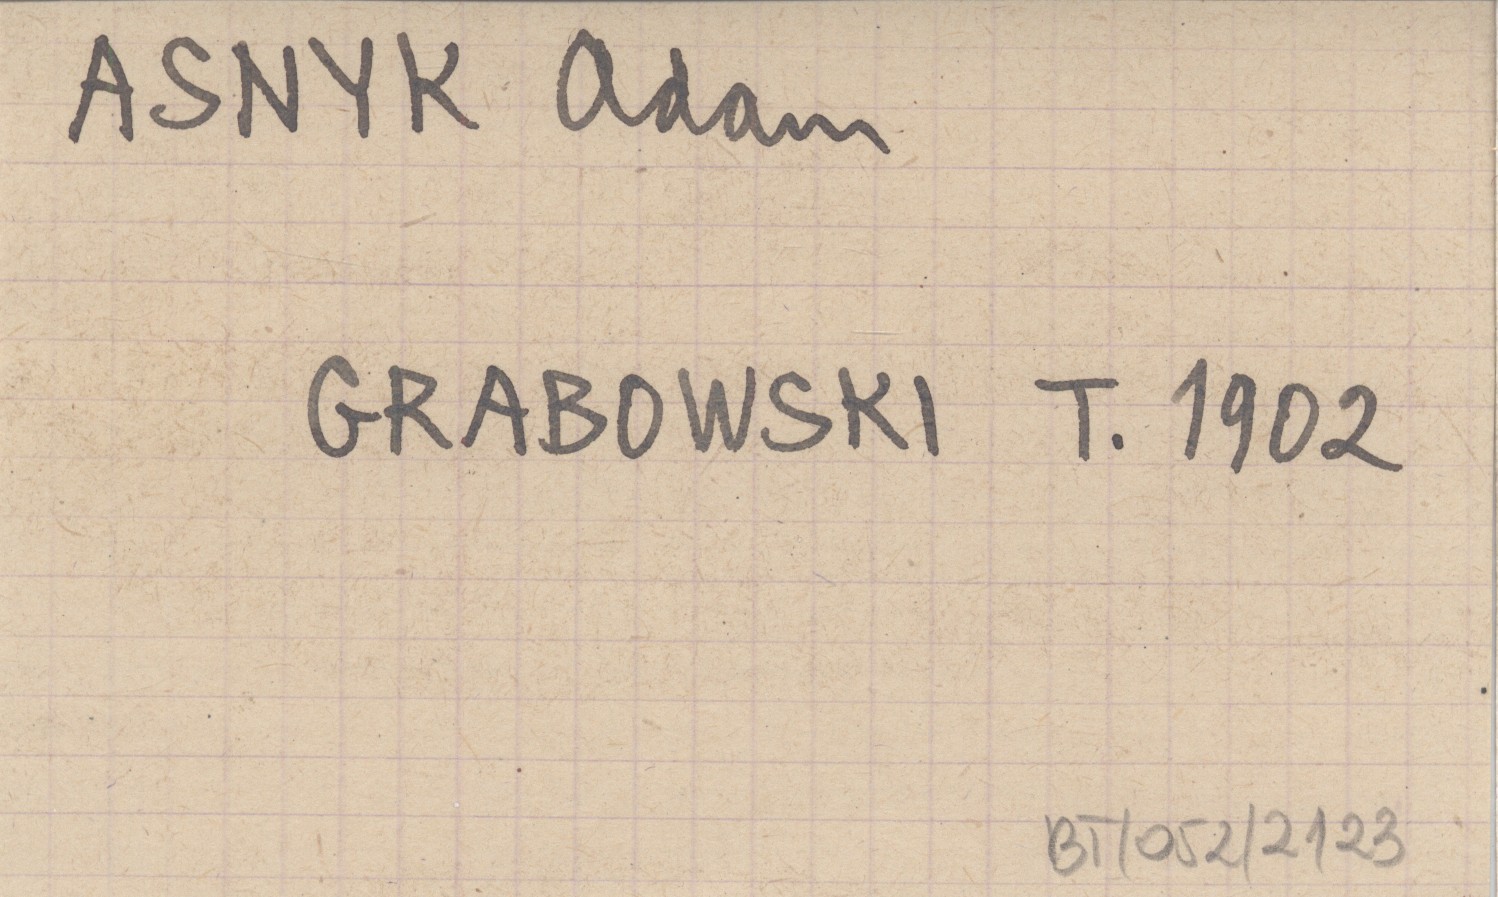 ASNYK Adam
GRABOWSKI T. 1902
BT/052/2123